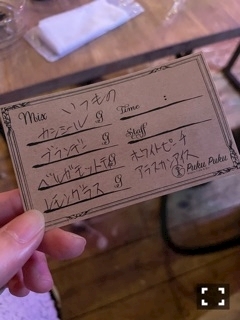 Mix いつもの
Time :
カシミール g
Staff
ブランデン g
ベルガモット g
レモングラス g
ホワイトピーチ
アラスカンアイス
Puku Puku